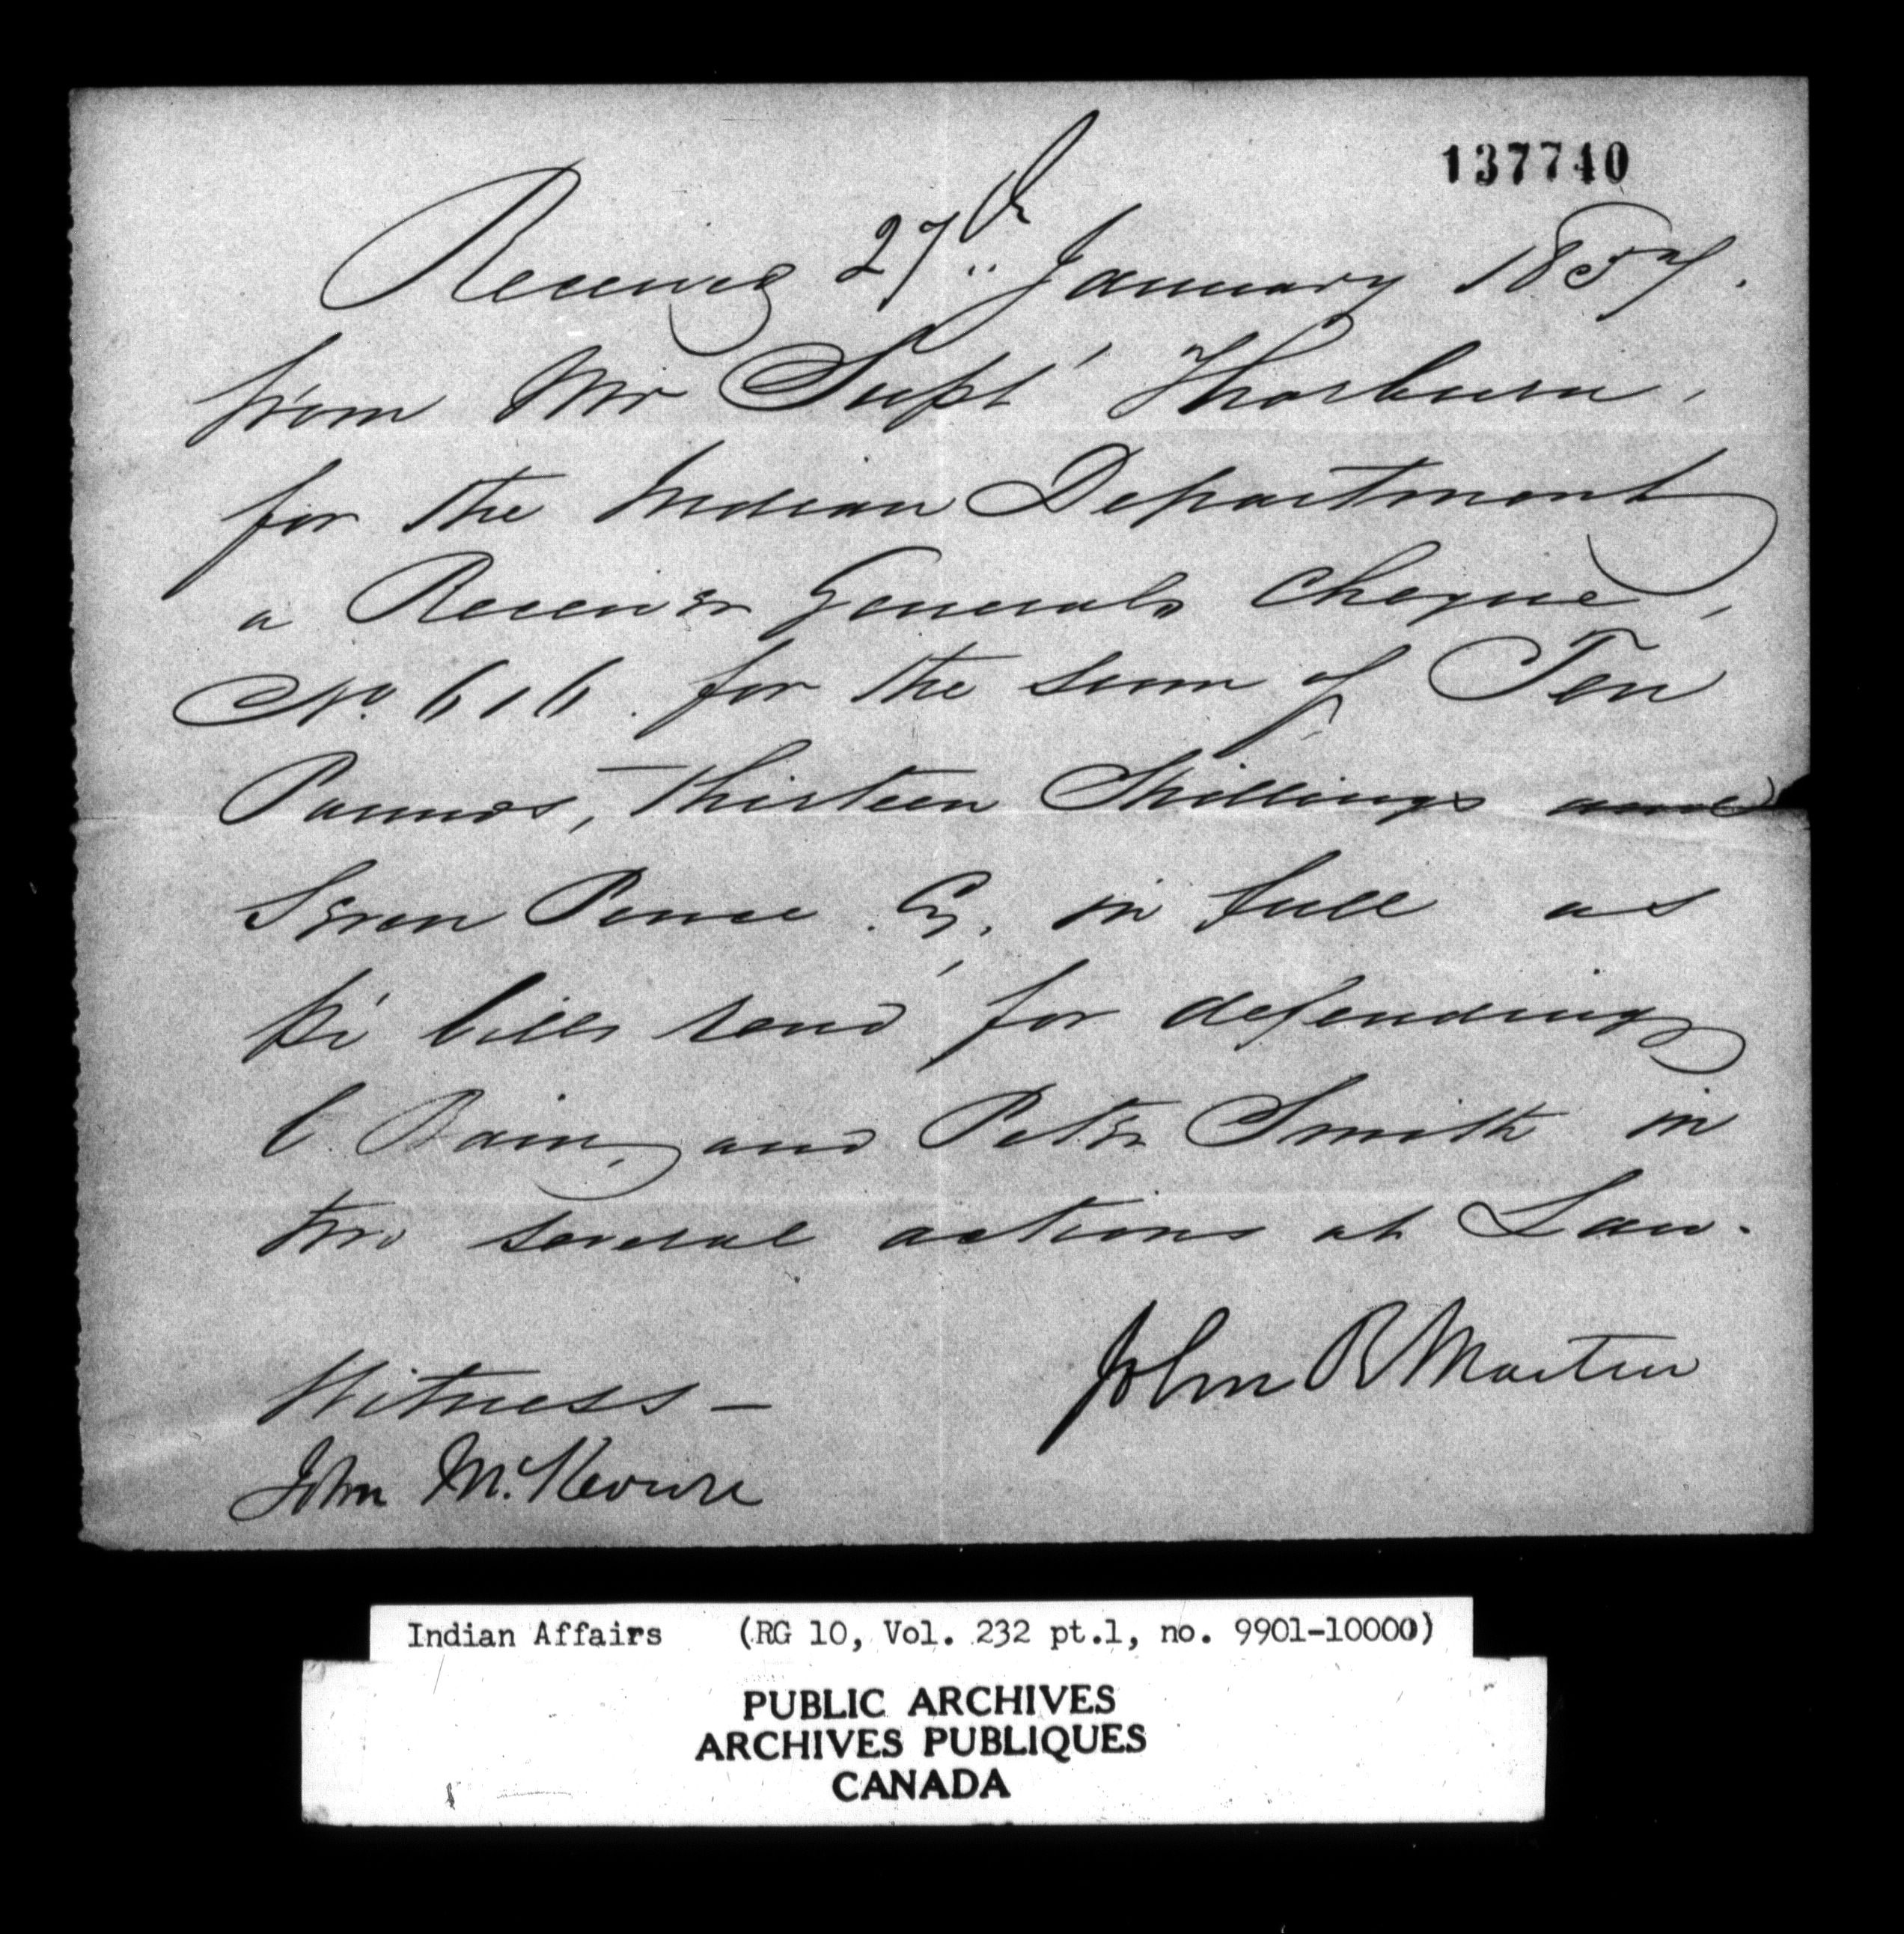 137740
Received 27th January 1857.
from Mr Supt Thorburn,
for the Indian Department
a Receiver Generals Cheque,
No. 616. for the sum of Ten
Pounds, Thirteen Shillings and
Seven Pence Cy. in full as
pr bills rend for defending
C. Bain, and Peter Smith in
two several actions at Law.
John R Martin
Witness -
John
Indian Affairs (RG 10, Vol. 232 pt.1, no. 9901-10000)
PUBLIC ARCHIVES
ARCHIVES PUBLIQUES
CANADA